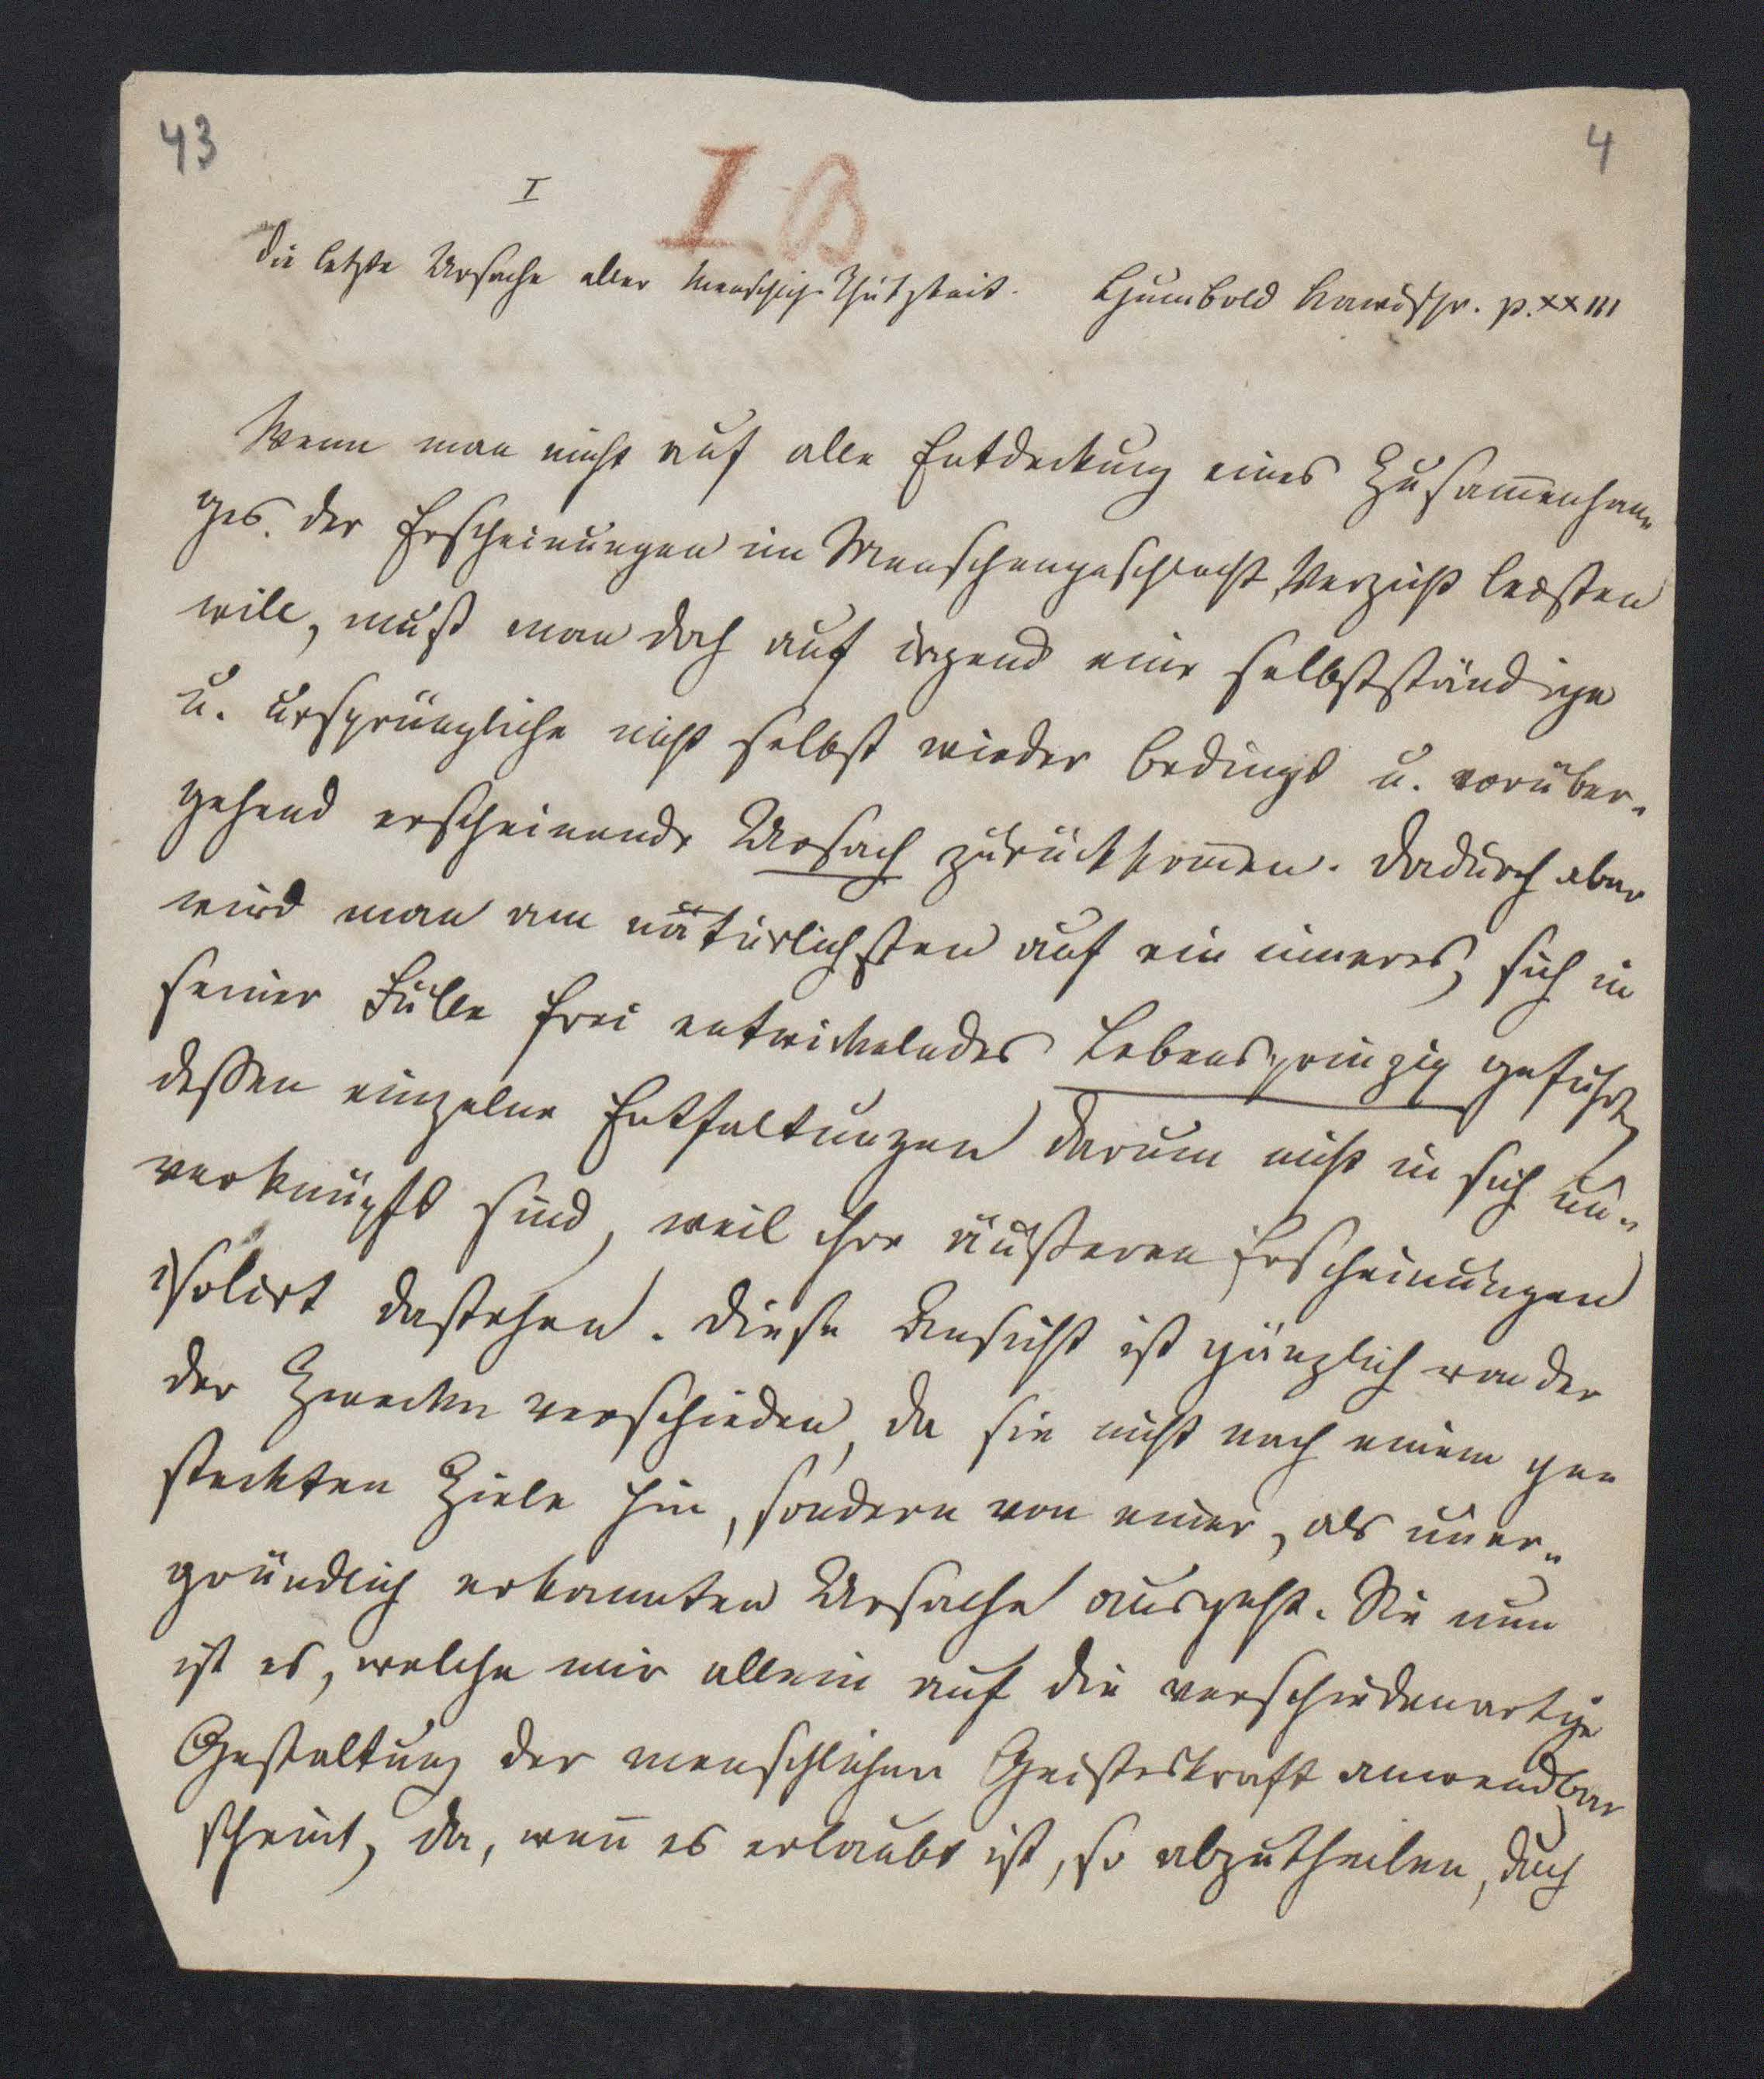 43
4
I
I B.
Die letzte Ursache aller menschlich. Thätigkeit. Humbold Kawispr. p. XXIII
Wenn man nicht auf alle Entdeckung eines Zusam̄enhan-
ges der Erscheinungen im Menschengeschlecht Verzicht leisten
will, muß man doch auf irgend eine selbstständige
u. ursprüngliche nicht selbst wieder bedingt u. vorüber-
gehend erscheinende Ursach zurückkom̄en. Dadurch aber
wird man am natürlichsten auf ein inneres, sich in
seiner Fülle frei entwickelndes Lebensprinzip geführt,
dessen einzelne Entfaltungen darum nicht in sich un-
verknüpft sind, weil ihre äußeren Erscheinungen
isolirt dastehen. Diese Ansicht ist gänzlich von der
der Zwecke verschieden, da sie nicht nach einem ge-
steckten Ziele hin, sondern von einer, als uner-
gründlich erkannten Ursache ausgeht. Sie nun
ist es, welche mir allein auf die verschiedenartige
Gestaltung der menschlichen Geisteskraft anwendbar
scheint, da, wen̄ es erlaubt ist, so abzutheilen, durch